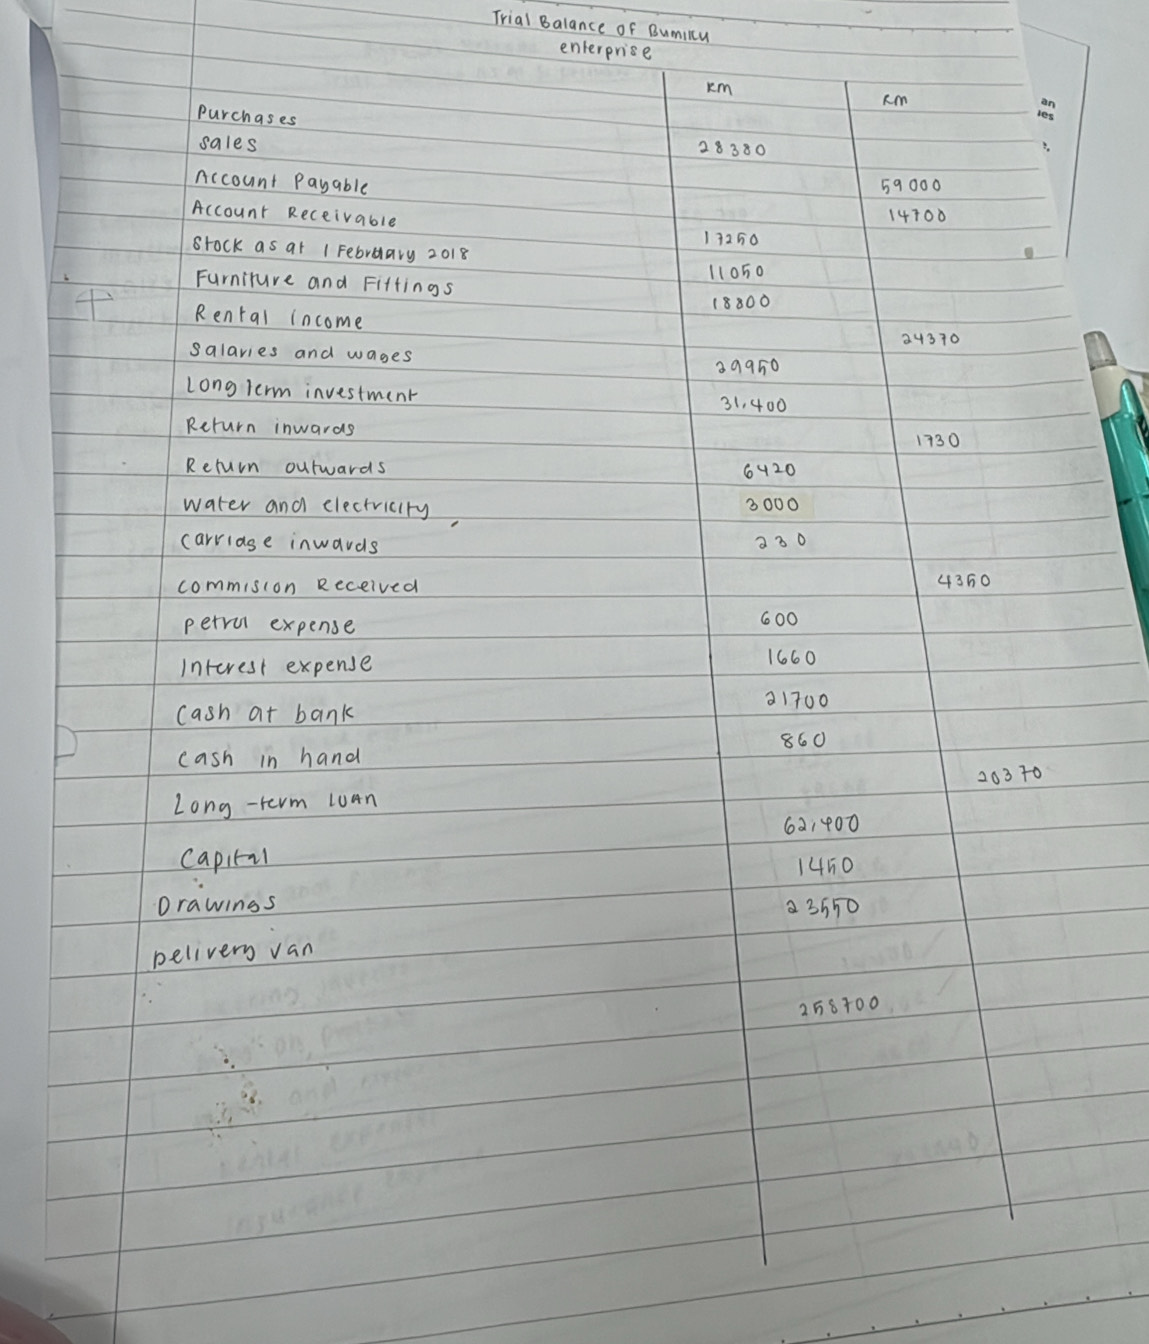 Trial Balance of Bumiku
enterprise
RM RM
Purchases 28380
sales 59000
Account Payable 14700
Account Receivable 17250
Stock as at 1 February 2018 11050
Furniture and Fittings 18800
Rental income 24370
salaries and wages 29950
Long term investment 31,400
Return inwards 1730
Return outwards 6420
water and electricity 3000
carriage inwards 230
commision Received 4350
petrol expense 600
Interest expense 1660
cash at bank 21700
cash in hand 860
Long-term loan 20370
Capital 62,400
Drawings 1450
Delivery van 23550
258700
an